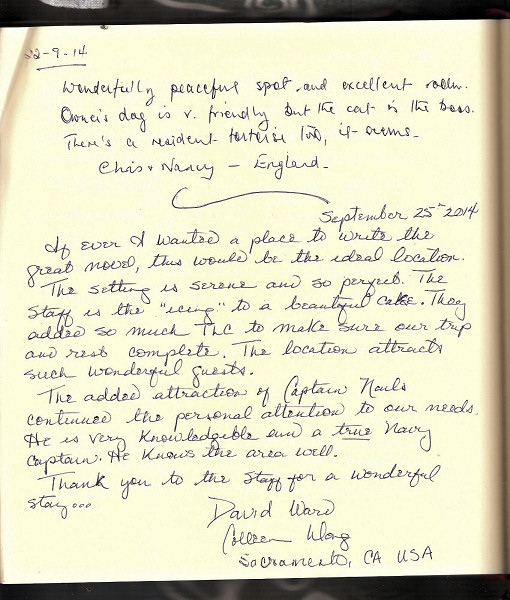 22-9-14
Wonderfully peaceful spot and excellent room.
Owner's dog is v. friendly but the cat is the boss.
There's a resident tortoise too, it seems.
Chris & Nancy - England.
September 25th 2014
If ever I wanted a place to write the
great novel, this would be the ideal location.
The setting is serene and so perfect. The
Staff is the "icing" to a beautiful cake. They
added so much TLC to make sure our trip
and rest complete. The location attracts
such wonderful guests.
The added attraction of Captain Nails
continued the personal attention to our needs.
He is very knowledgible and a true Navy
Captain. He knows the area well.
Thank you to the Staff for a wonderful
stay...
David Ward
Colleen Wong
Sacramento, CA USA